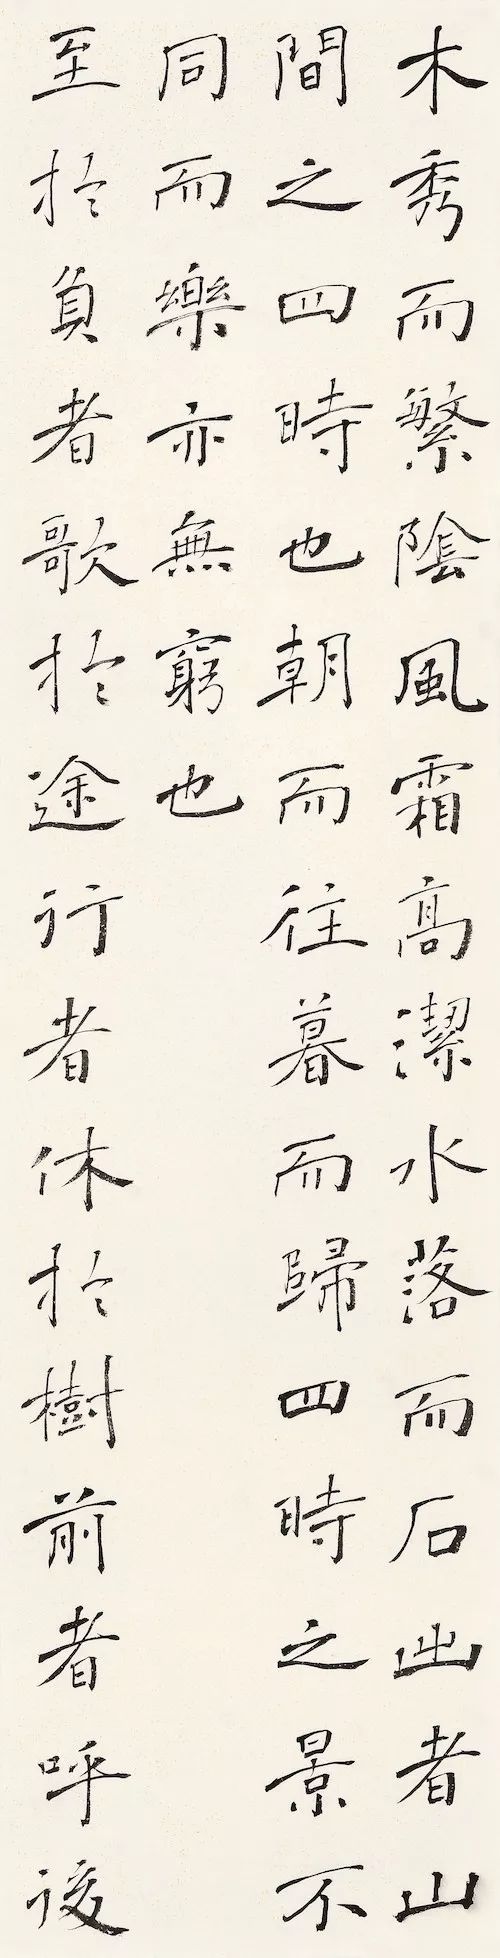 木秀而繁陰風霜高潔水落而石出者山
間之四時也朝而往暮而歸四時之景不
同而樂亦無窮也
至於負者歌於途行者休於樹前者呼後